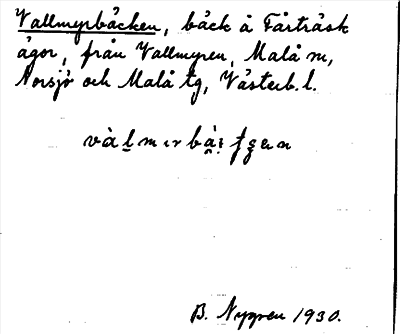 Vallmyrbäcken, bäck å Fårträsk
ägor, från Vallmyren, Malå sn,
Norsjö och Malå tg, Västerb. l.
B. Nygren 1930.